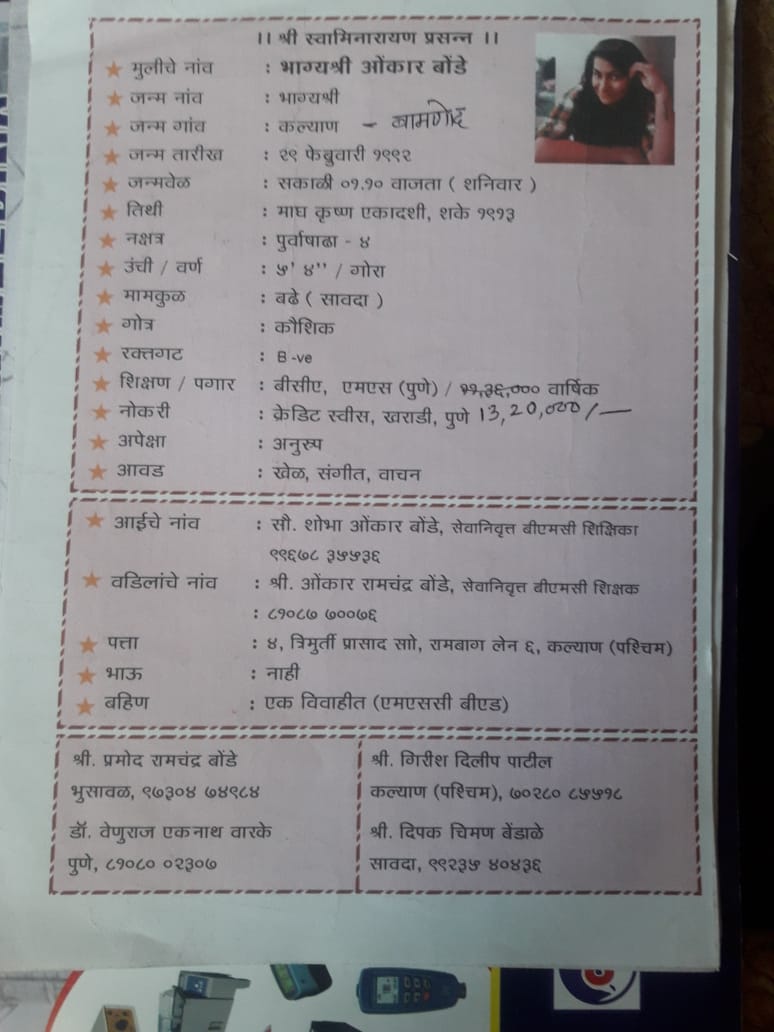 ।। श्री स्वामिनारायण प्रसन्न ।।
मुलीचे नांव : भाग्यश्री ओंकार बोंडे
जन्म नांव : भाग्यश्री
जन्म गांव : कल्याण - बामणोद
जन्म तारीख : २९ फेब्रुवारी १९९२
जन्मवेळ : सकाळी ०१.१० वाजता ( शनिवार )
तिथी : माघ कृष्ण एकादशी, शके १९१३
नक्षत्र : पुर्वाषाढा - ४
उंची / वर्ण : ५' ४'' / गोरा
मामकुळ : बढे ( सावदा )
गोत्र : कौशिक
रक्तगट : B -ve
शिक्षण / पगार : बीसीए, एमएस (पुणे) / ११,३६,००० वार्षिक
नोकरी : क्रेडिट स्वीस, खराडी, पुणे 13,20,000/-
अपेक्षा : अनुरुप
आवड : खेळ, संगीत, वाचन
आईचे नांव : सौ. शोभा ओंकार बोंडे, सेवानिवृत्त बीएमसी शिक्षिका
९९६७८ ३५५३६
वडिलांचे नांव : श्री. ओंकार रामचंद्र बोंडे, सेवानिवृत्त बीएमसी शिक्षक
: ८१०८७ ७००७६
पत्ता : ४, त्रिमुर्ती प्रासाद सो, रामबाग लेन ६, कल्याण (पश्चिम)
भाऊ : नाही
बहिण : एक विवाहीत (एमएससी बीएड)
श्री. प्रमोद रामचंद्र बोंडे
भुसावळ, ९७३०४ ७४९८४
डॉ. वेणुराज एकनाथ वारके
पुणे, ८१०८० ०२३०७
श्री. गिरीश दिलीप पाटील
कल्याण (पश्चिम), ७०२८० ८५५१८
श्री. दिपक चिमण बेंडाळे
सावदा, ९९२३५ ४०४३६